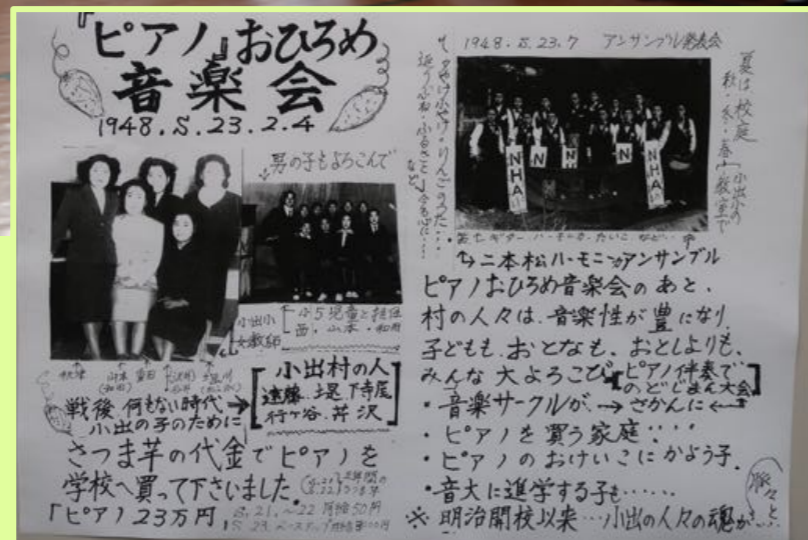 『ピアノ』おひろめ
音楽会
1948.S.23.2.4
男の子もよろこんで
小出小
女教師
小5児童と担任
西・山本・和田
秋津
山本
富田
戦後 何もない時代→
小出の子のために
小出村の人
遠藤 堤 下寺尾
行ヶ谷 芹沢
さつま芋の代金でピアノを
学校へ買って下さいました。
「ピアノ23万円
S.21.〜22 月給50円
1948.S.23.7 アンサンブル発表会
夏は校庭
秋・冬・春は教室で
小出小の
夕やけ小やけ・りんごのうた
ふるさと
など
NHA
N
N
N
NHA
ギター ハーモニカ たいこ など
↳二本松ハーモニカアンサンブル
ピアノおひろめ音楽会のあと、
村の人々は、音楽性が豊になり
子どもも、おとなも、おとしよりも、
みんな大よろこび
ピアノ伴奏で
のどじまん大会
・音楽サークルが、→さかんに←
・ピアノを買う家庭‥‥
・ピアノのおけいこにかよう子.
・音大に進学する子も……
※ 明治開校以来…小出の人々の魂が…
脈々と